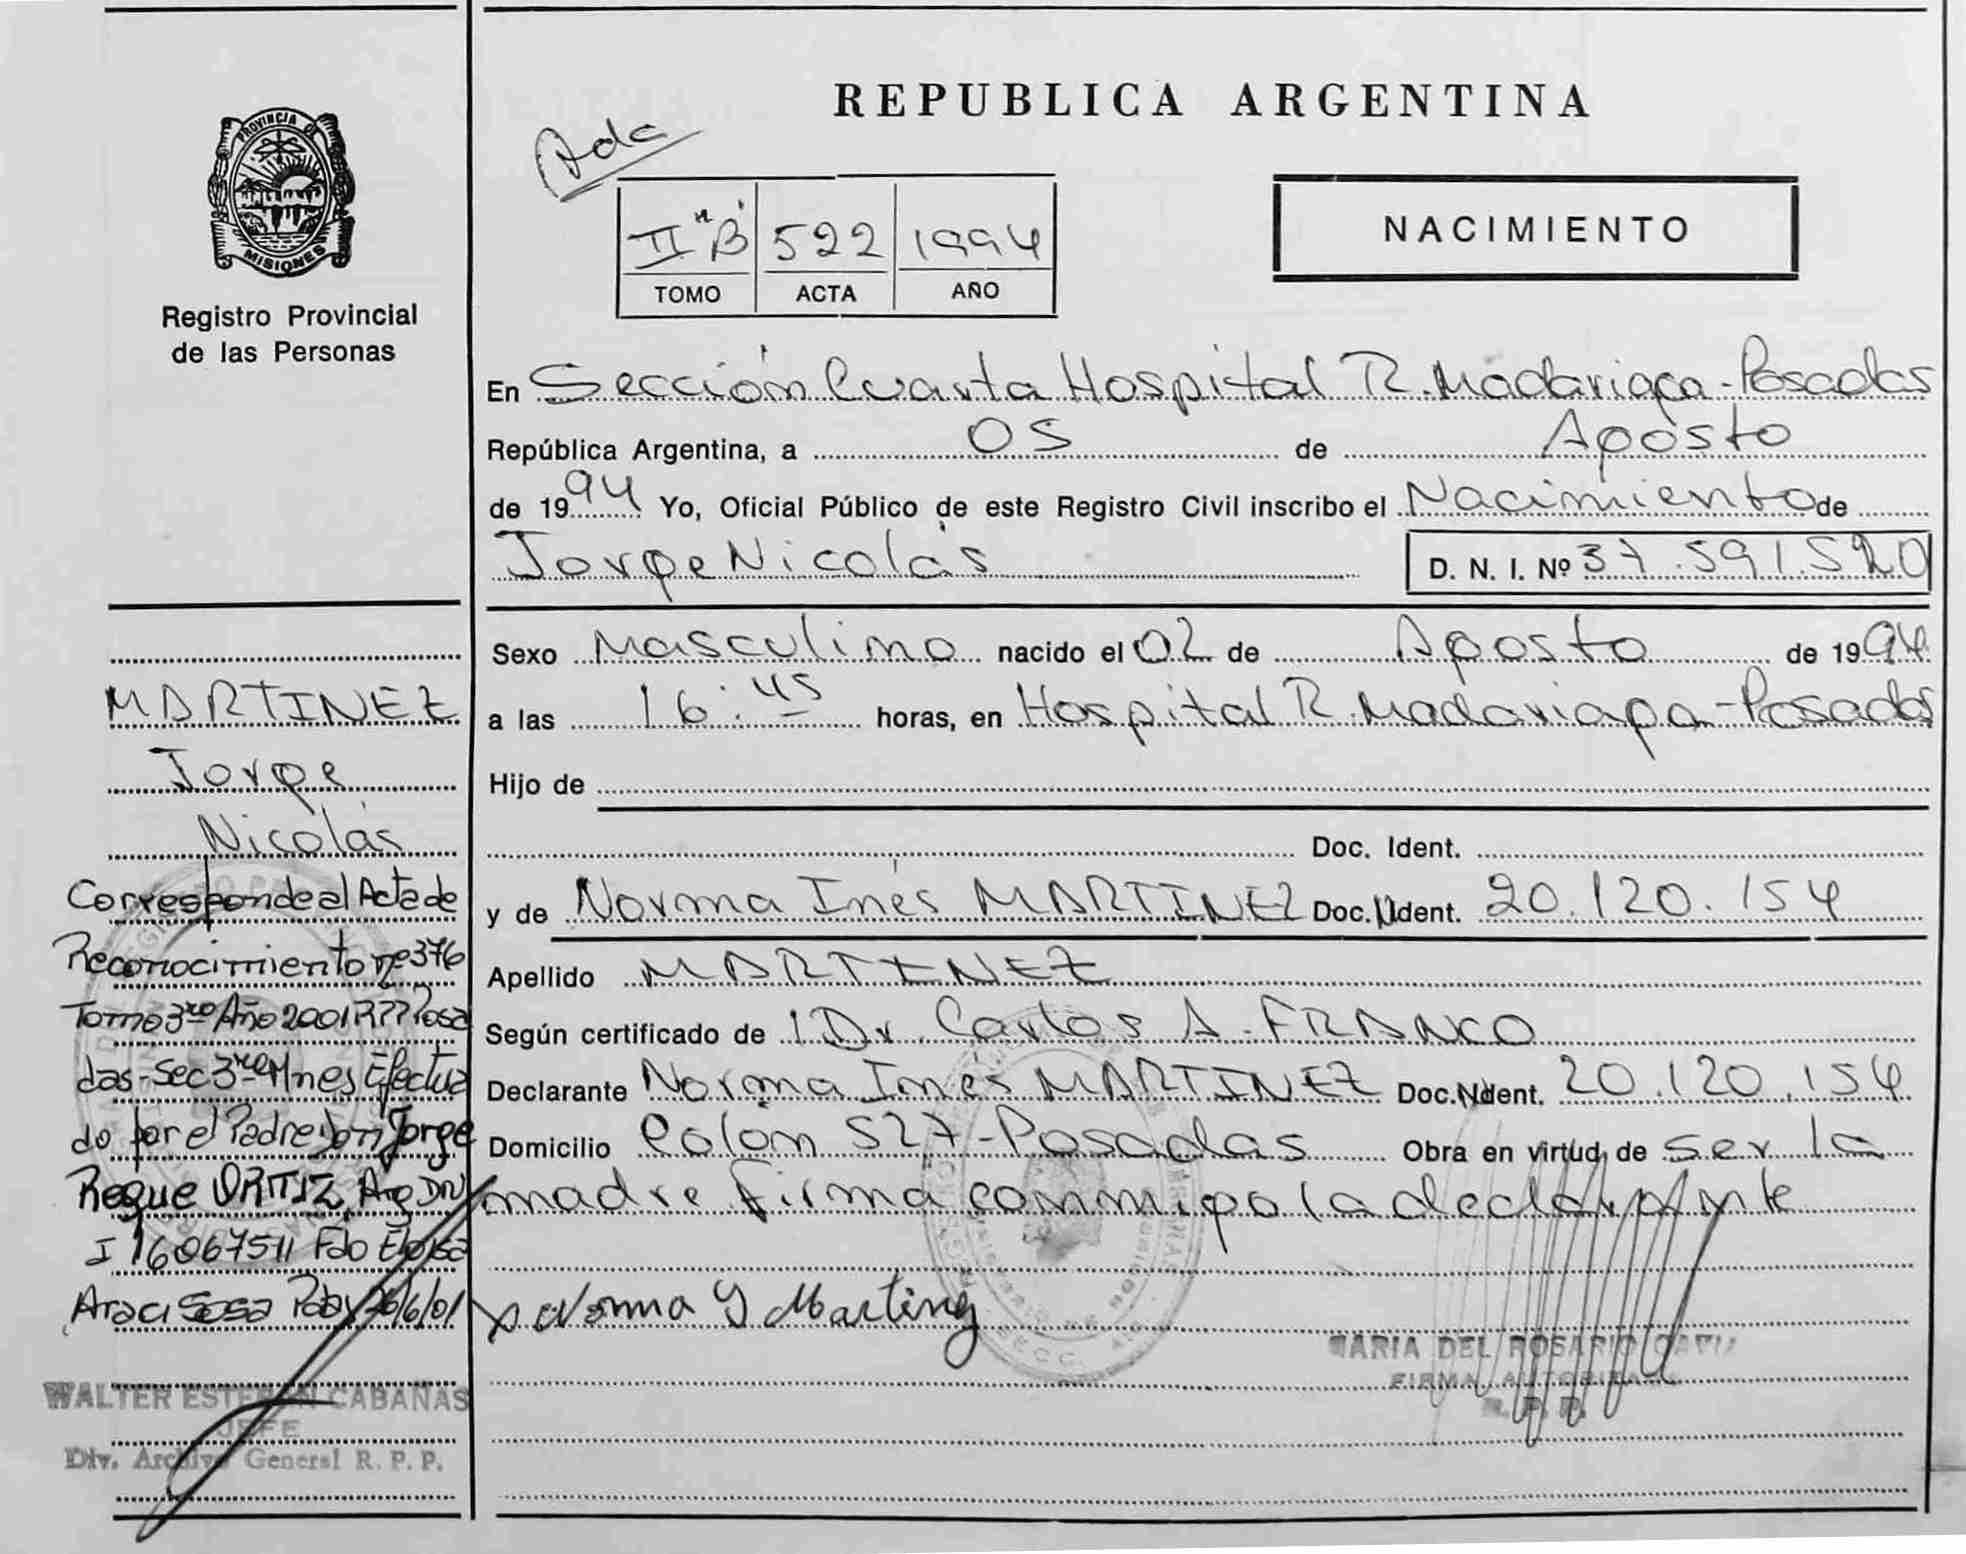 PROVINCIA DE
MISIONES
Registro Provincial
de las Personas
MARTINEZ
Jorge
Nicolás
Corresponde al Acta de
Reconocimiento nº 376
Tomo 3ro Año 2001 RPP Posa
das - Sec 3ra Mnes Efectua
do por el Padre Don Jorge
Roque ORTIZ, Arg DN
I 16067511 Fdo Eloisa
Araci Sosa Pdas 26/6/01
WALTER ESTEBAN CABAÑAS
JEFE
Div. Archivo General R. P. P.
REPUBLICA ARGENTINA
NACIMIENTO
II "B" 522 1994
TOMO ACTA AÑO
En Sección Cuarta Hospital R. Madariaga - Posadas
República Argentina, a 05 de Agosto
de 1994 Yo, Oficial Público de este Registro Civil inscribo el Nacimiento de
Jorge Nicolás D. N. I. Nº 37.591.520
Sexo Masculino nacido el 02 de Agosto de 1994
a las 16:45 horas, en Hospital R. Madariaga - Posadas
Hijo de
Doc. Ident.
y de Norma Inés MARTINEZ Doc. Ident. 20.120.154
Apellido MARTINEZ
Según certificado de Dr. Carlos A. FRANCO
Declarante Norma Inés MARTINEZ Doc. Ident. 20.120.154
Domicilio Colón 527 - Posadas Obra en virtud de ser la
madre firma conmigo la declarante
Norma I Martinez
MARIA DEL ROSARIO
FIRMA AUTORIZADA
R. P. P.